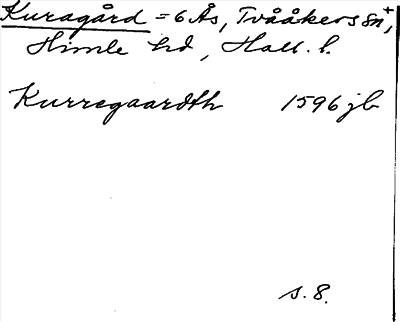 Kuragård = 6 Ås, Tvååkers sn+,
Himle hd, Hall. l.
Kurregaardth 1596 jb
s. 8.